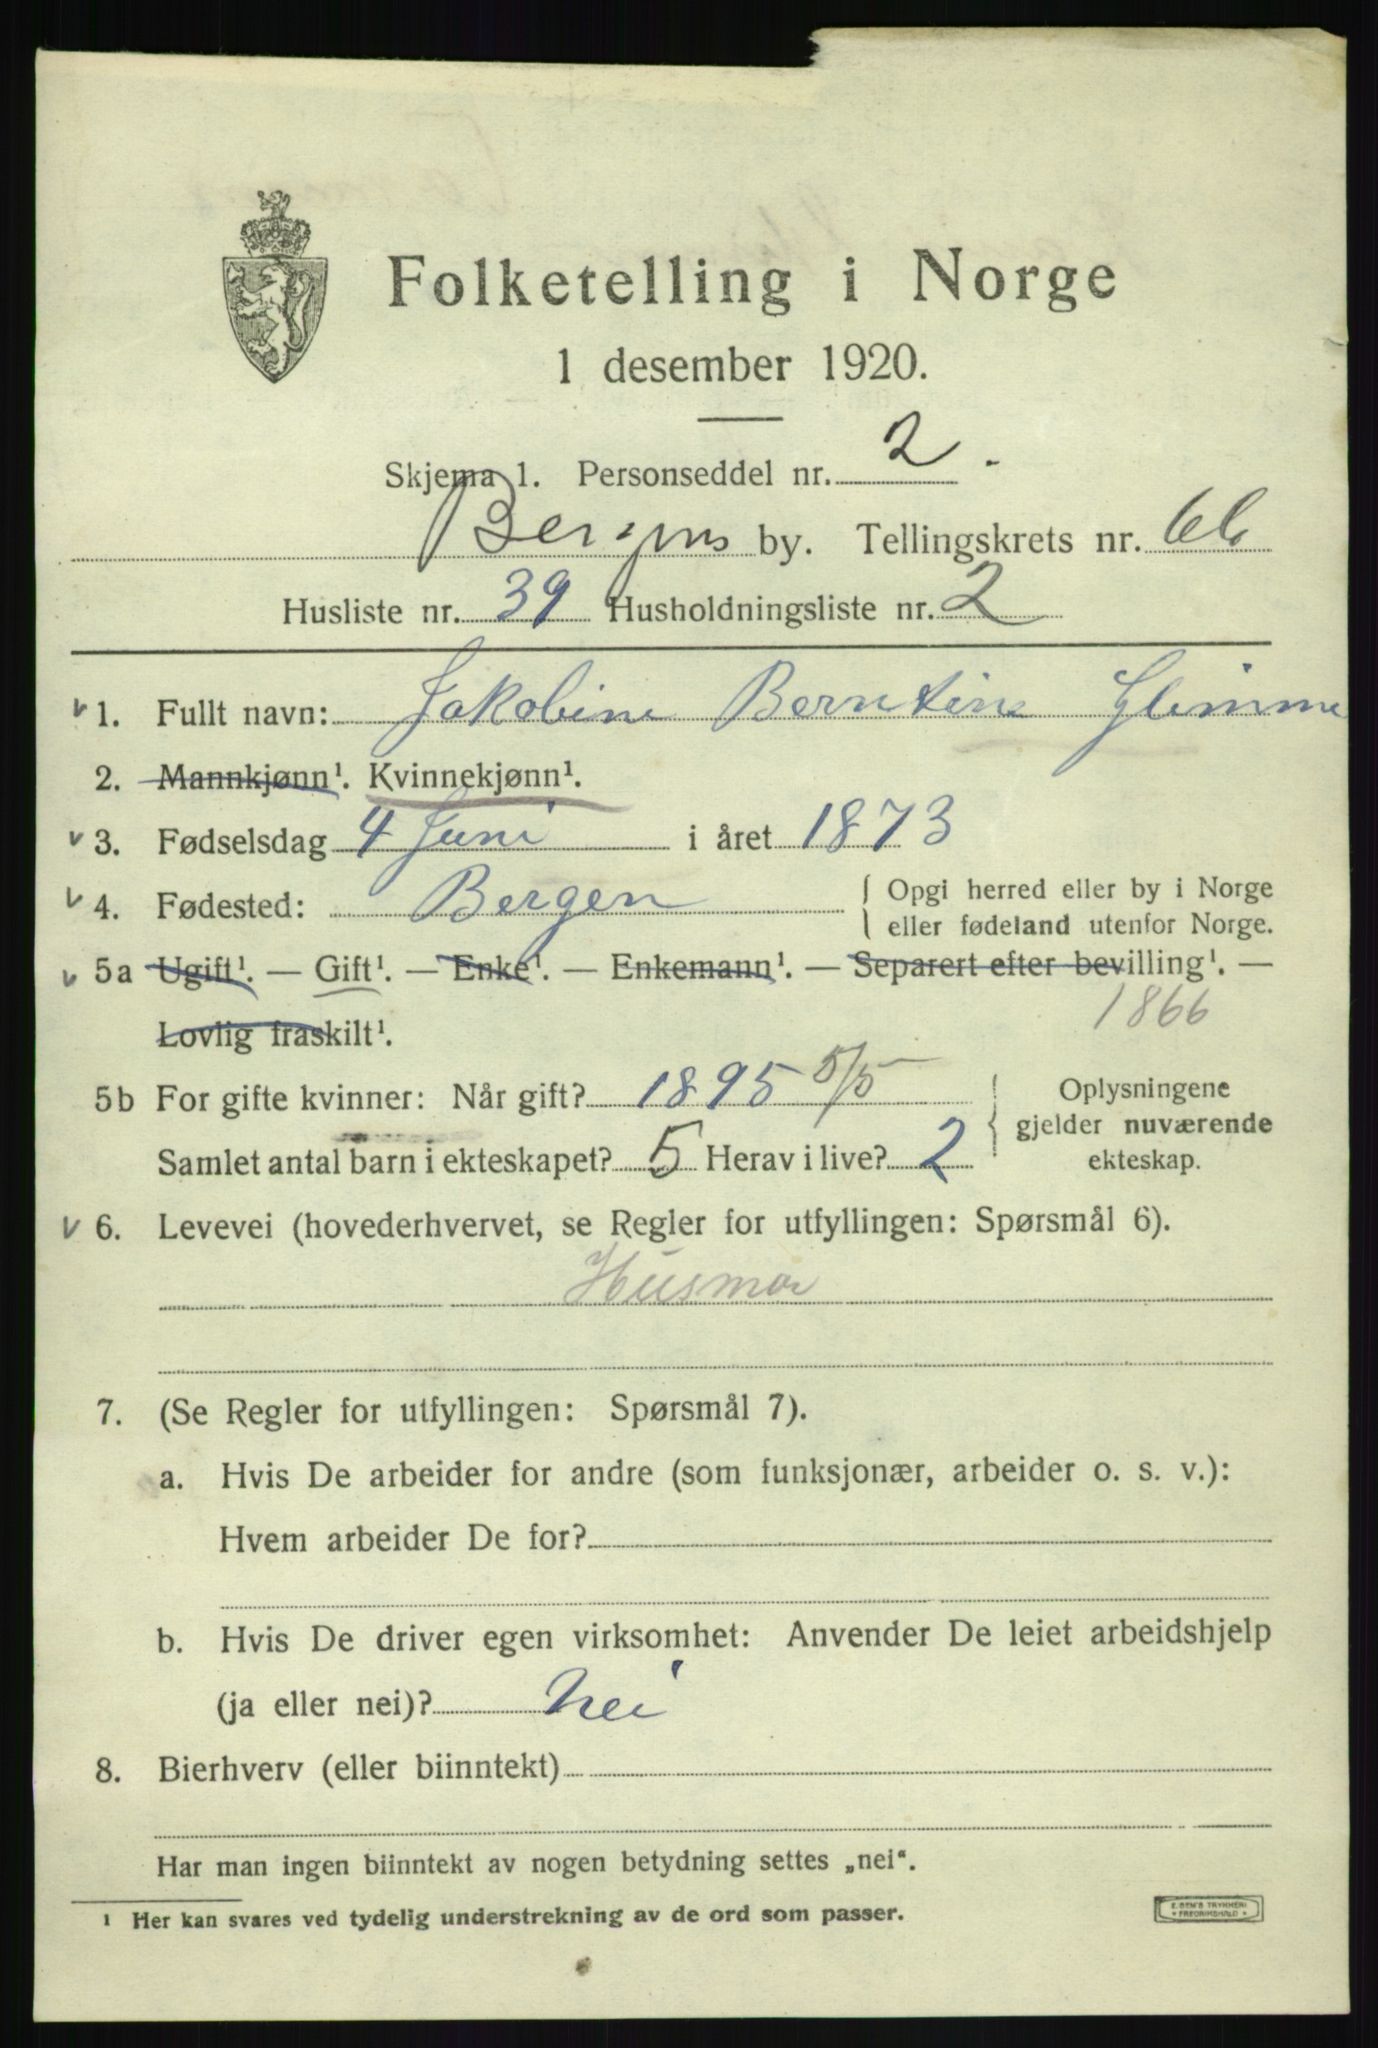 Folketelling i Norge
1 desember 1920.
Skjema 1. Personseddel nr. 2.
Bergens by. Tellingskrets nr. 66
Husliste nr. 39 Husholdningsliste nr. 2
1. Fullt navn: Jakobine Berntine Glimme
2. Mannkjønn¹. Kvinnekjønn¹.
3. Fødselsdag 4 Juni i året 1873
4. Fødested: Bergen { Opgi herred eller by i Norge
eller fødeland utenfor Norge.
5a Ugift¹. — Gift¹. — Enke¹. — Enkemann¹. — Separert efter bevilling¹. —
Lovlig fraskilt¹. 1866
5b For gifte kvinner: Når gift? 1895 5/5 { Oplysningene
gjelder nuværende
Samlet antal barn i ekteskapet? 5 Herav i live? 2 ekteskap.
6. Levevei (hovederhvervet, se Regler for utfyllingen: Spørsmål 6).
Husmor
7. (Se Regler for utfyllingen: Spørsmål 7).
a. Hvis De arbeider for andre (som funksjonær, arbeider o. s. v.):
Hvem arbeider De for?
b. Hvis De driver egen virksomhet: Anvender De leiet arbeidshjelp
(ja eller nei)? Nei
8. Bierhverv (eller biinntekt)
Har man ingen biinntekt av nogen betydning settes „nei“.
¹ Her kan svares ved tydelig understrekning av de ord som passer.
E. SEM'S TRYKKERI
FREDRIKSHALD